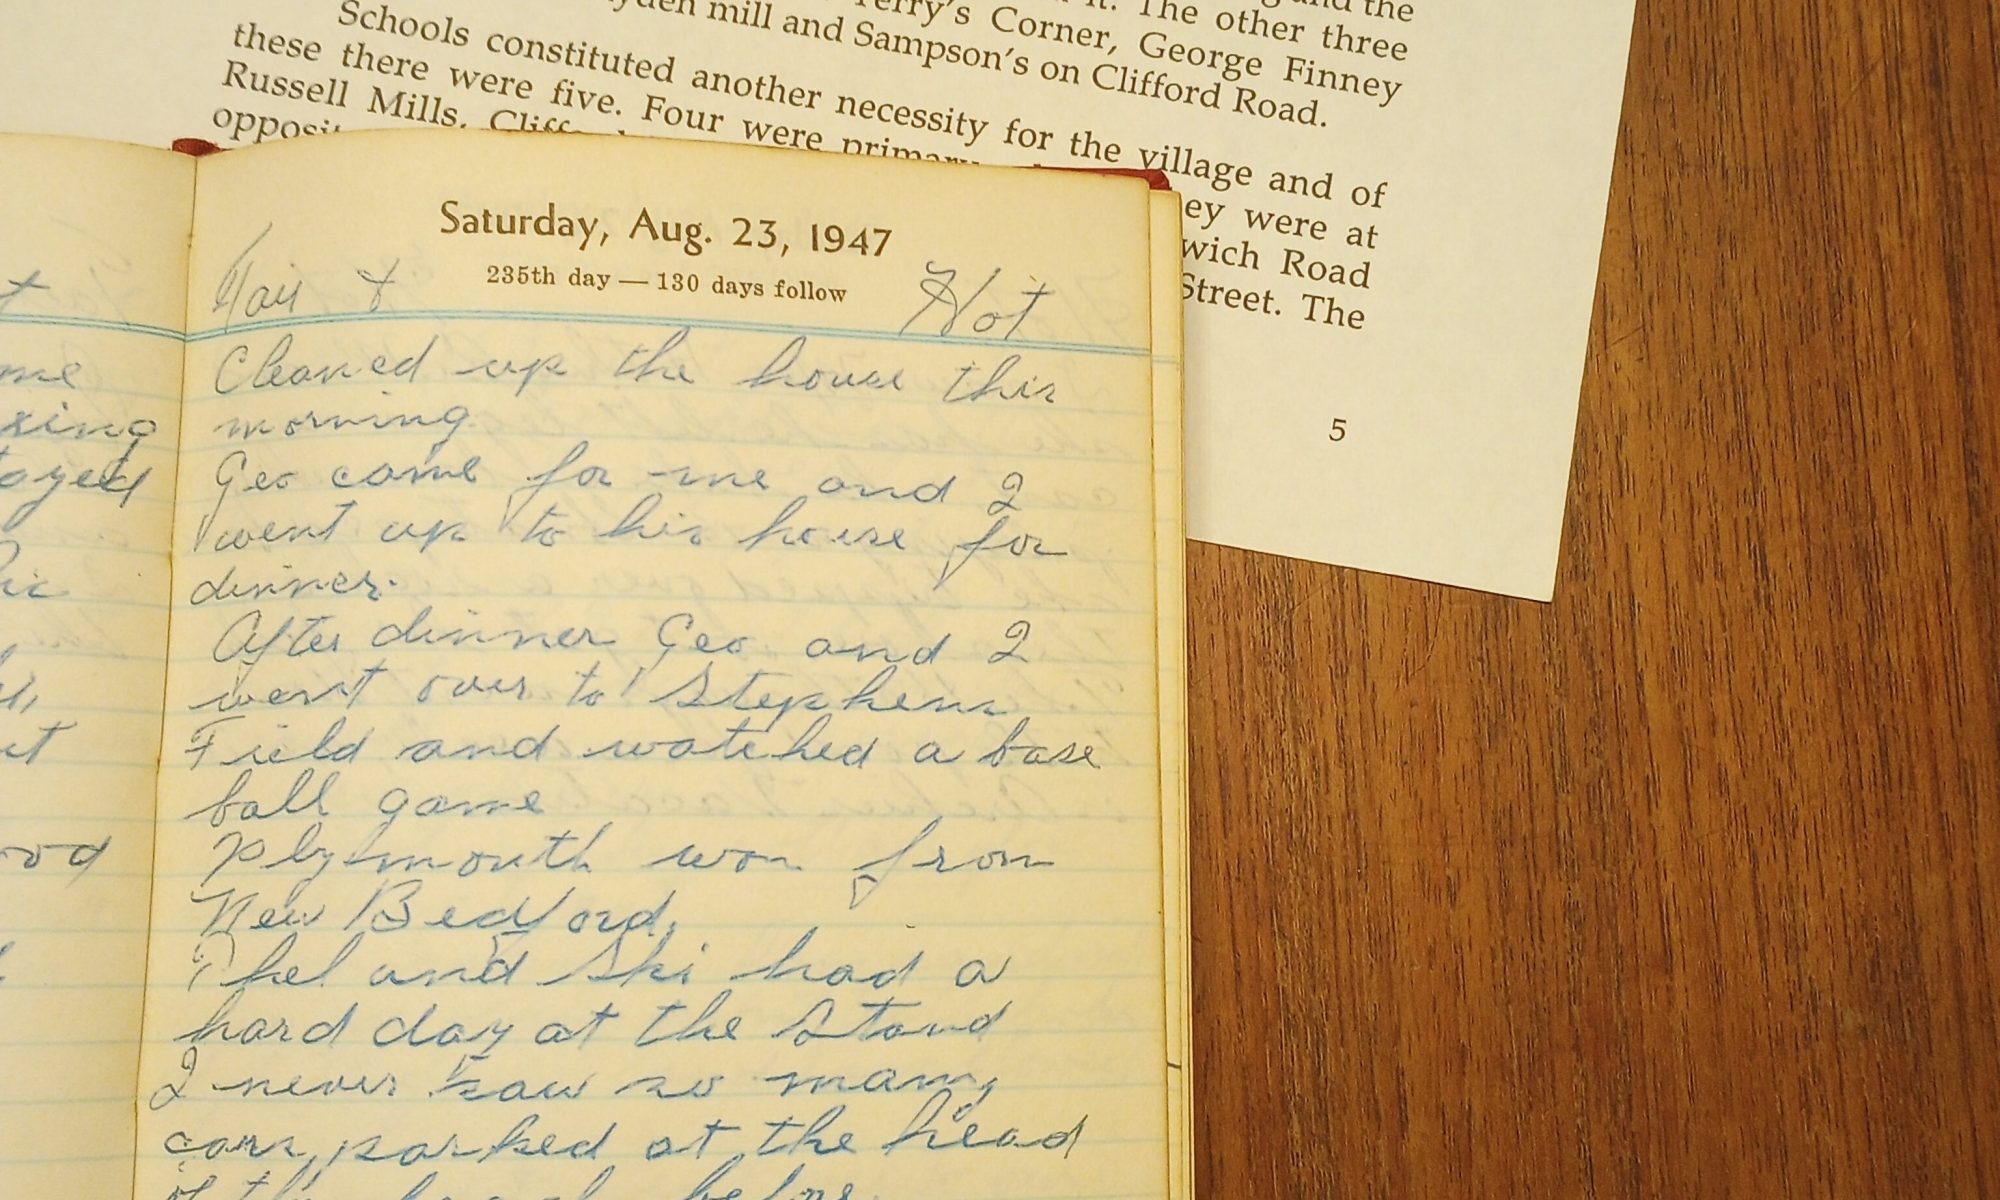 and the
it. The other three
Terry's Corner, George Finney
yden mill and Sampson's on Clifford Road.
Schools constituted another necessity for the village and of
these there were five. Four were primary
ey were at
Russell Mills, Cliff
wich Road
opposit
Street. The
5
t
me
xing
tayed
ut
ood
Saturday, Aug. 23, 1947
235th day — 130 days follow
Fair & Hot
Cleaned up the house this
morning
Geo came for me and I
went up to his house for
dinner.
After dinner Geo. and I
went over to Stephens
Field and watched a base
ball game
Plymouth won from
New Bedford.
Phel and Ski had a
hard day at the Stand
I never saw so many
cars parked at the head
of the beach before.